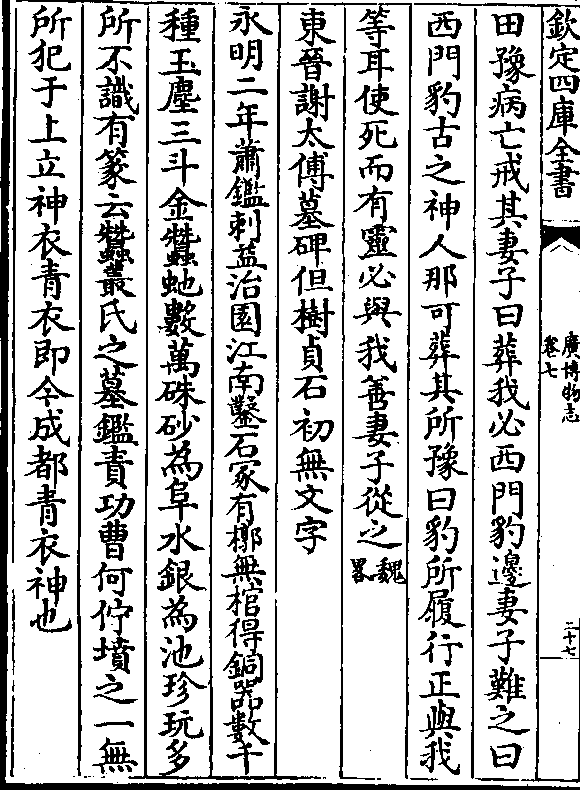 欽定四庫全書
廣博物志
卷七
二十七
田豫病亡戒其妻子曰葬我必西門豹邊妻子難之曰
西門豹古之神人那可葬其所豫曰豹所履行正與我
等耳使死而有靈必與我善妻子從之魏畧
東晉謝太傅墓碑但樹貞石初無文字
永明二年蕭鑑刺益治園江南鑿石冢有槨無棺得銅器數千
種玉塵三斗金蠶虵數萬硃砂為阜水銀為池珍玩多
所不識有篆云蠶叢氏之墓鑑責功曹何佇墳之一無
所犯于上立神衣青衣即今成都青衣神也